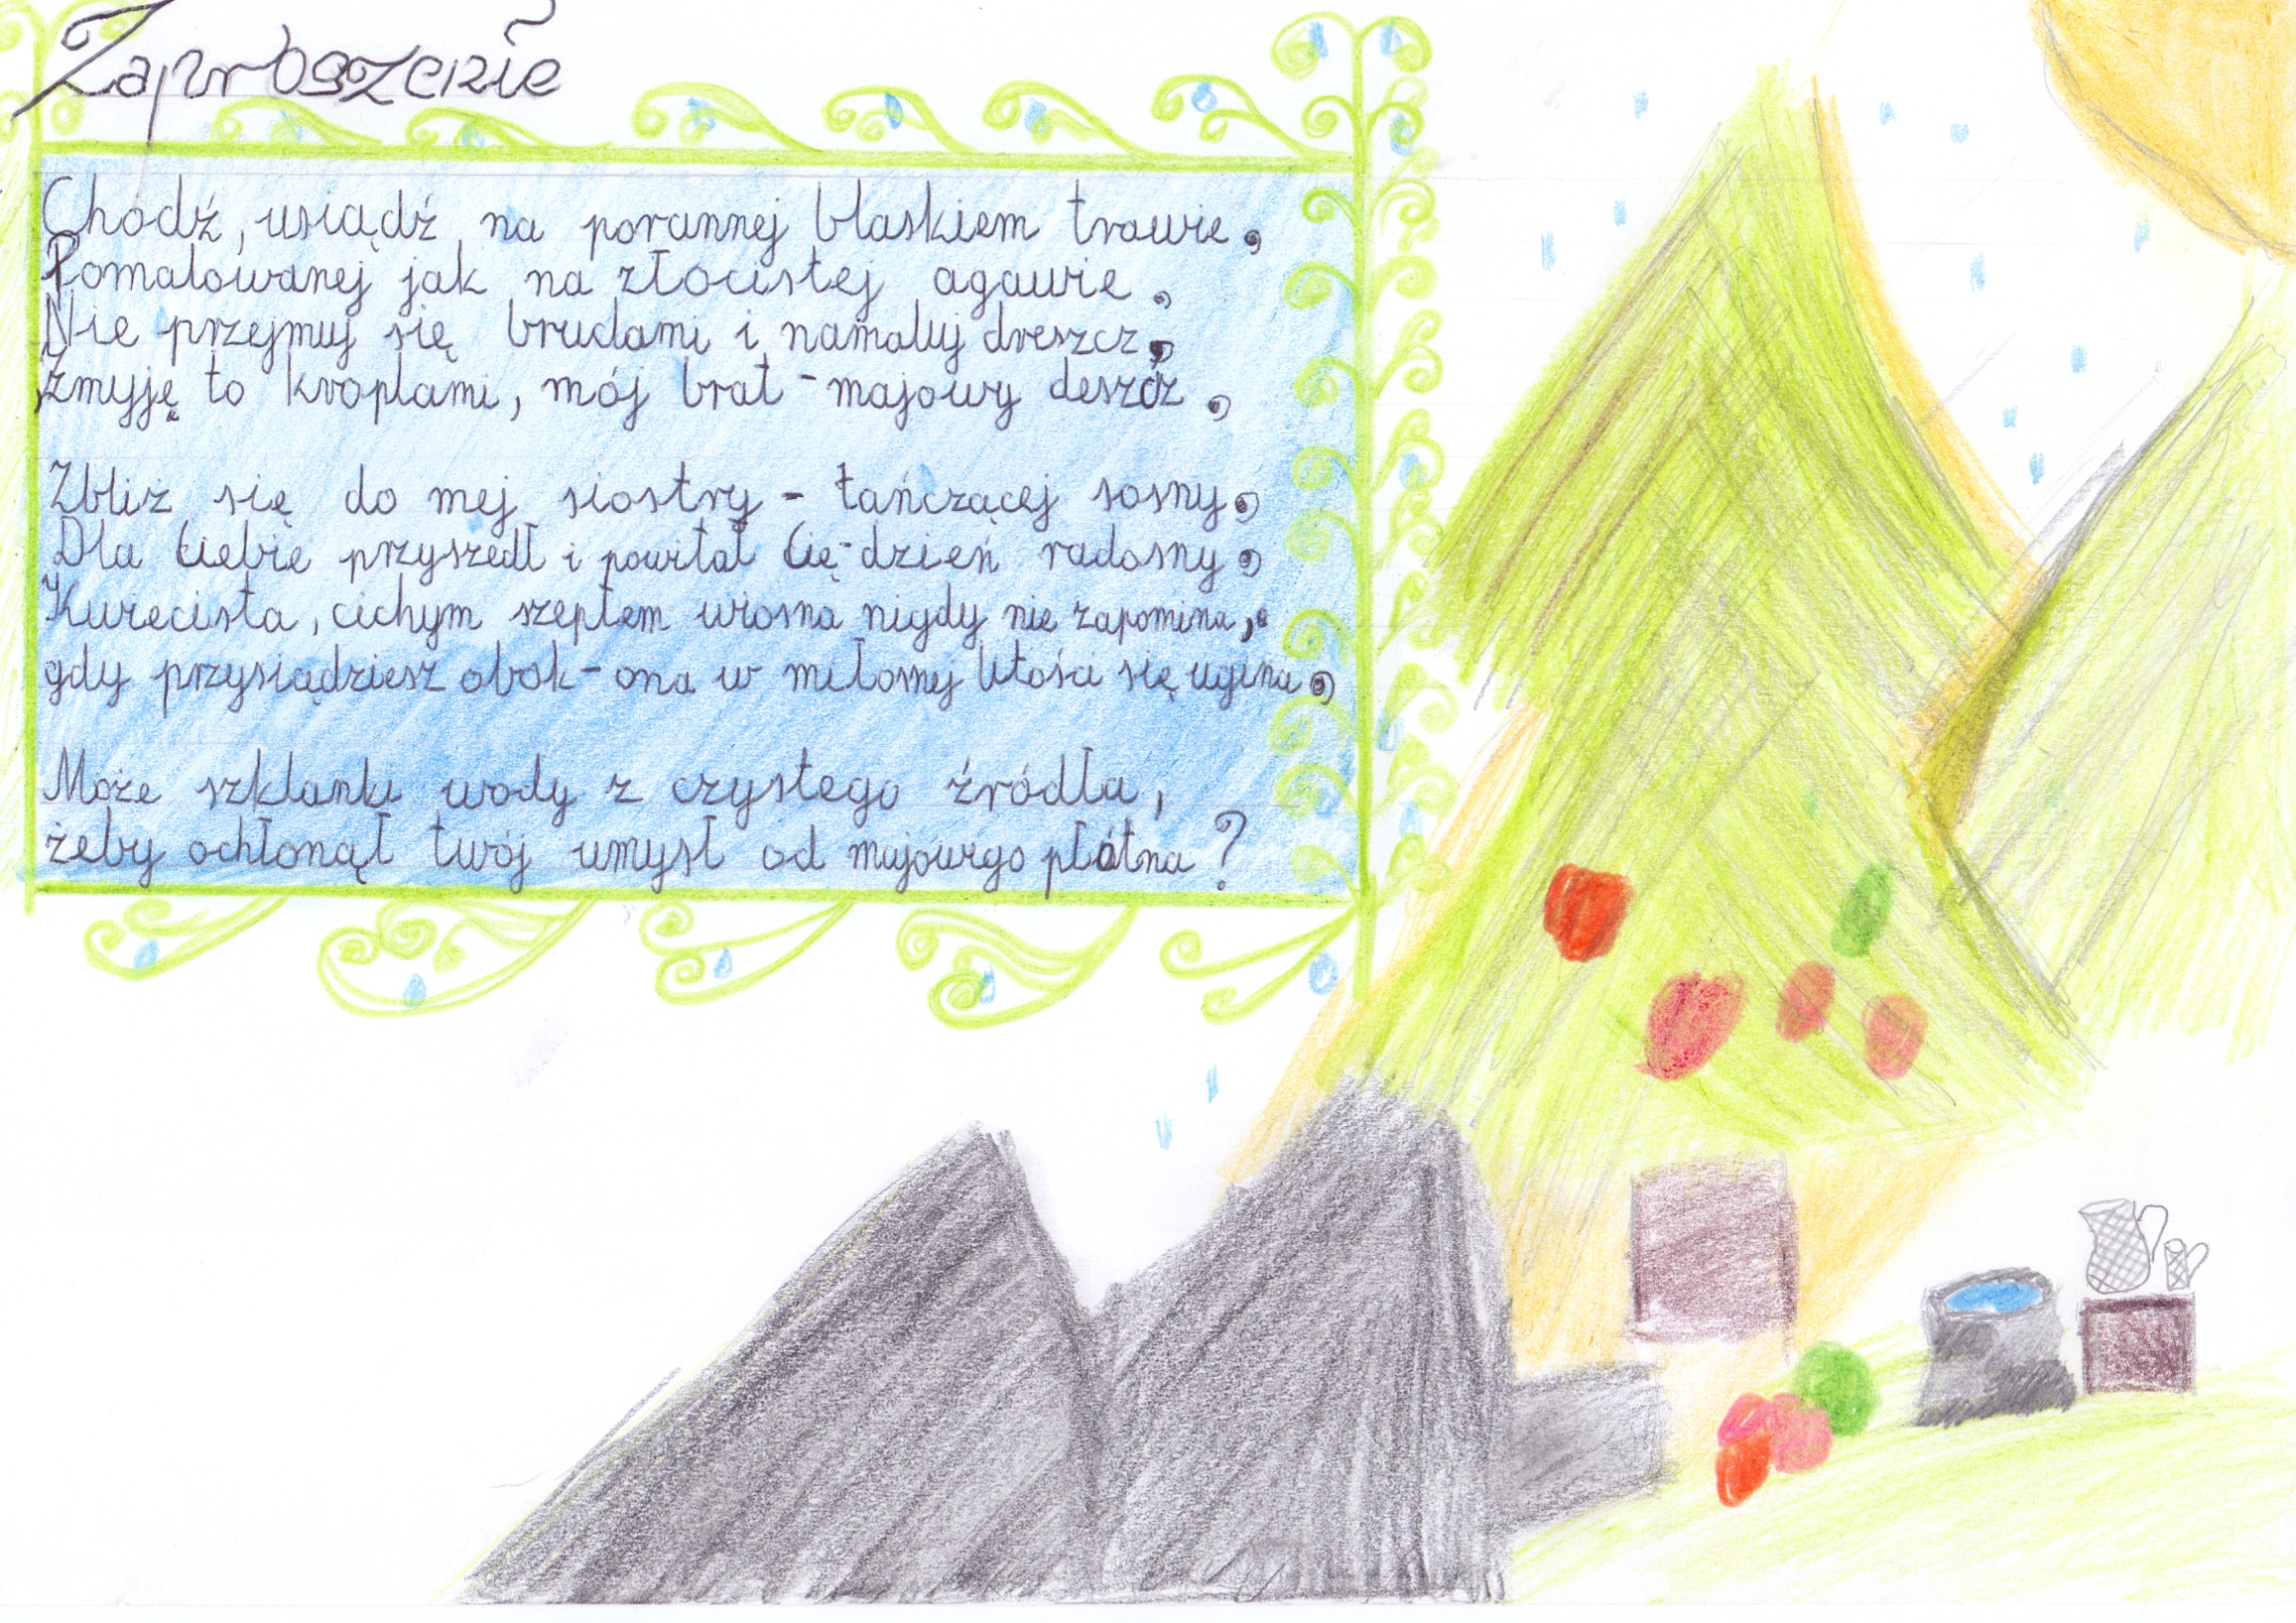 Zaproszenie
Chodź, usiądź na porannej blaskiem trawie,
Pomalowanej jak na złocistej agawie,
Nie przejmuj się brudami i namaluj dreszcz,
Zmyję to kroplami, mój brat - majowy deszcz,
Zbliż się do mej siostry - tańczącej sosny,
Dla Ciebie przyszedł i powitał Cię - dzień radosny,
Kwiecista, cichym szeptem wiosna nigdy nie zapomina,
gdy przysiądziesz obok - ona w miłosnej litości się ugina,
Może szklanki wody z czystego źródła,
żeby ochłonął twój umysł od majowego płótna?